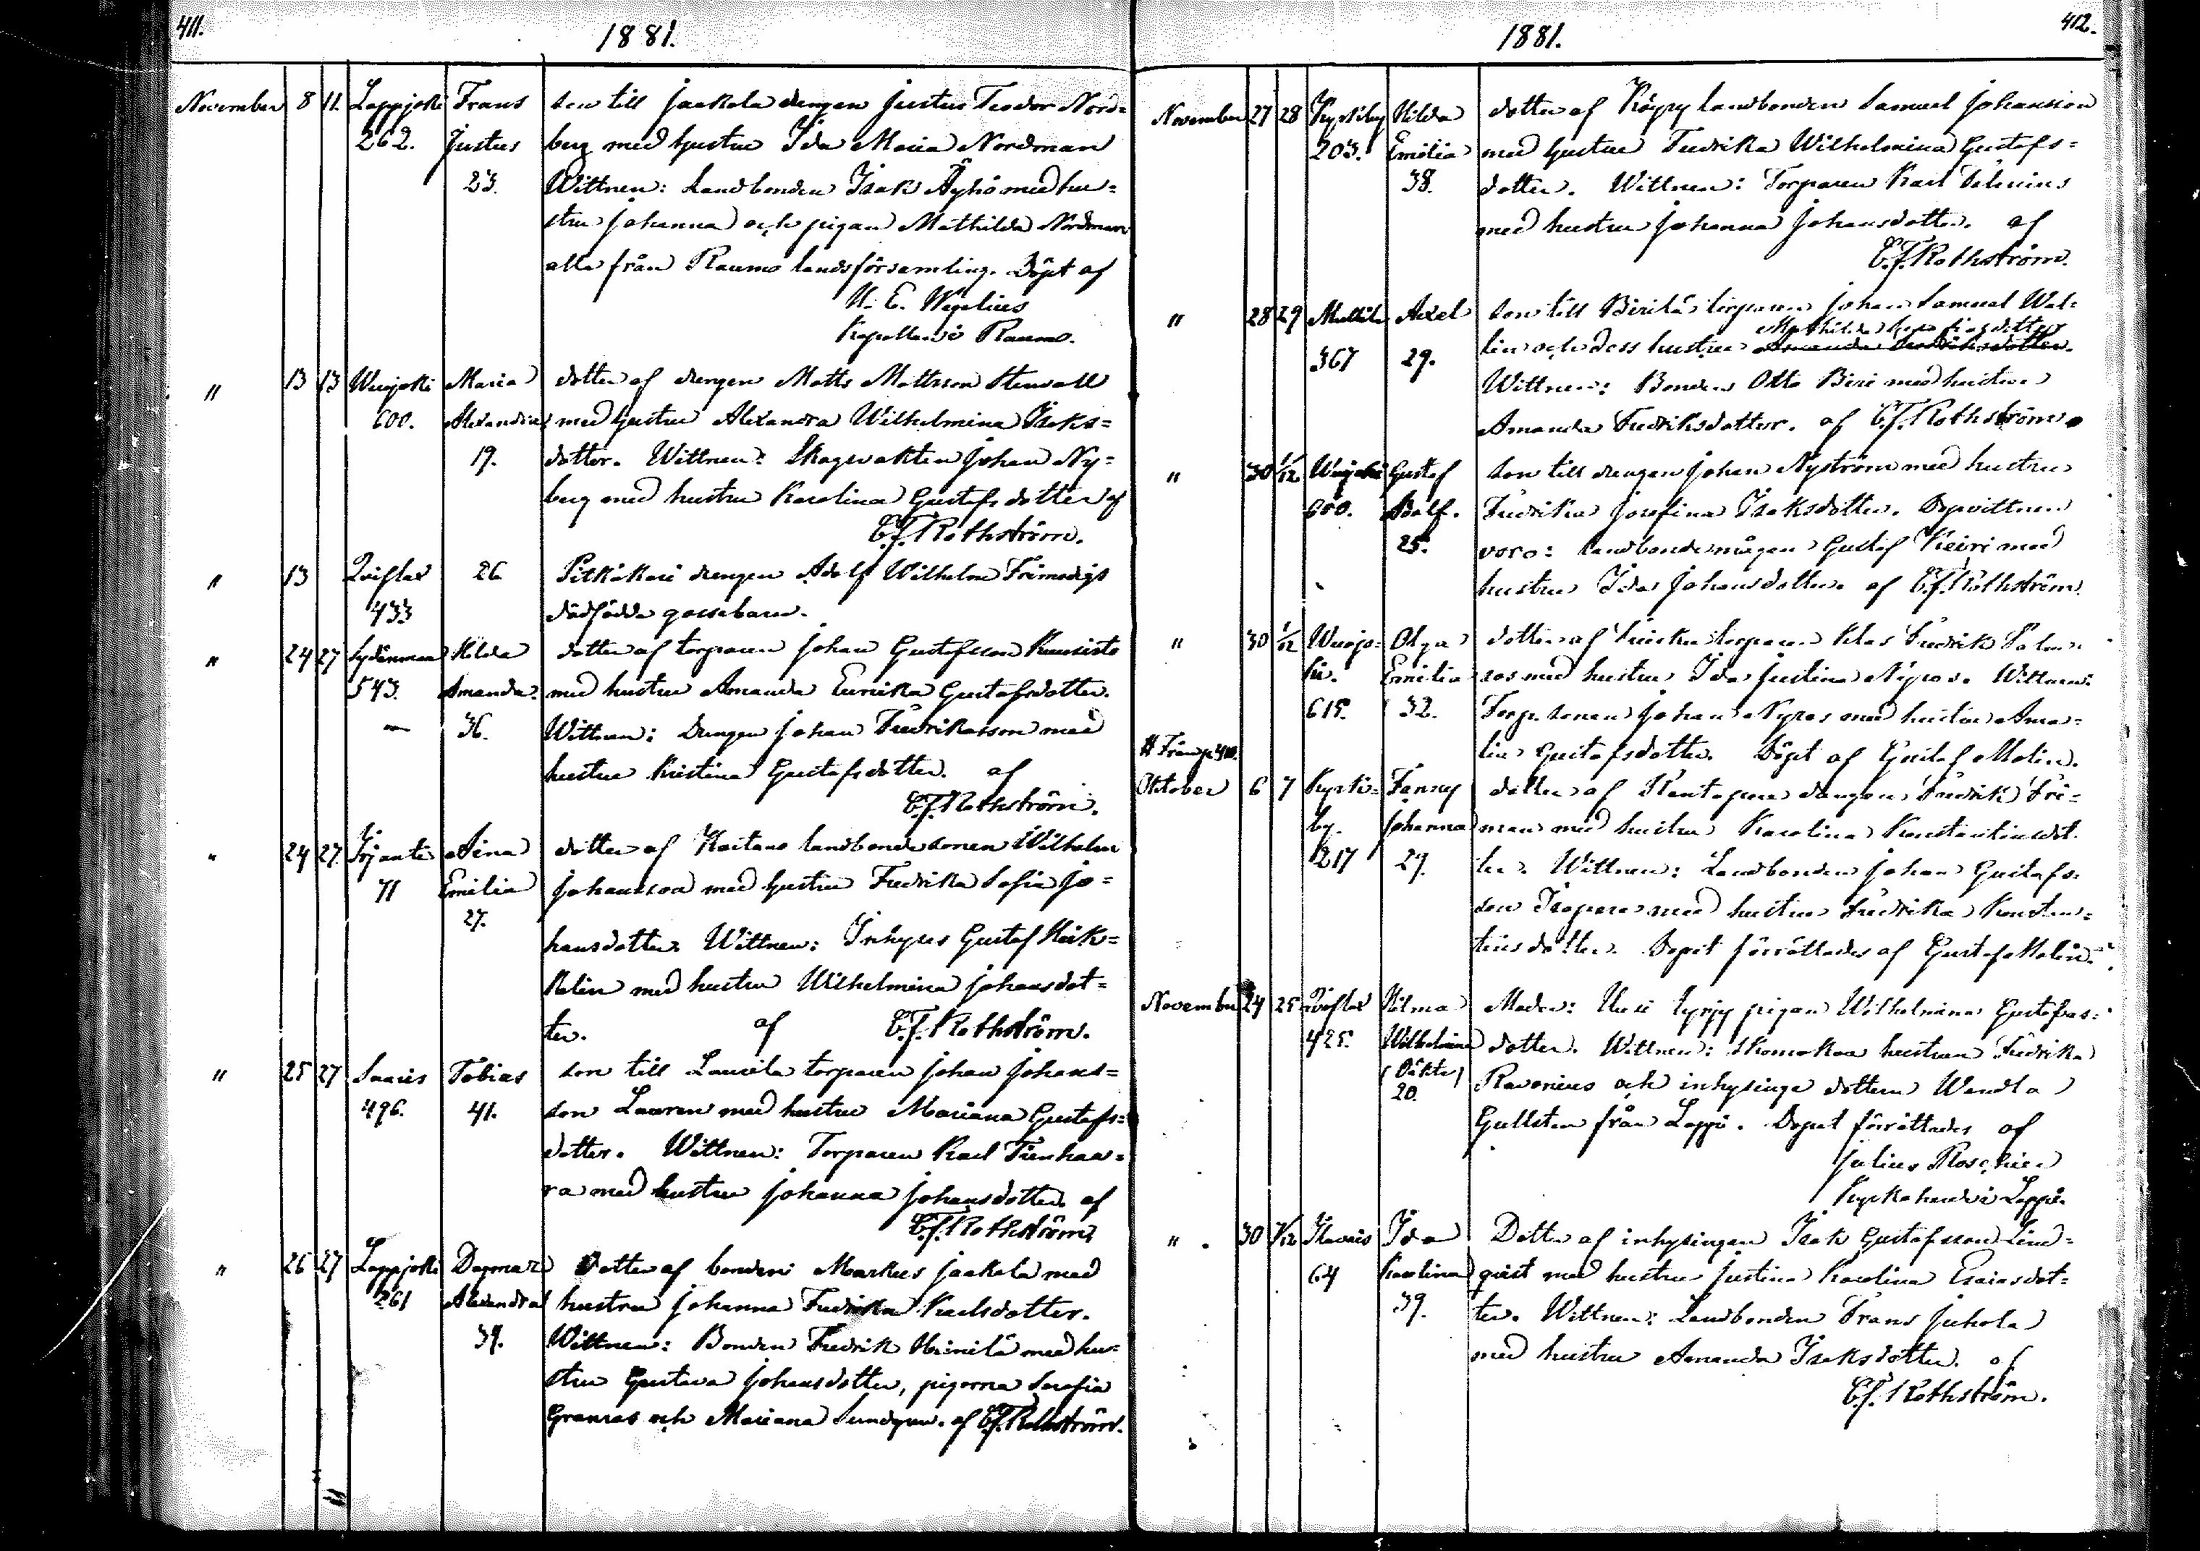 411.
1881.
November 8 11. Lappjoki Frans son till Jaakola drengen Justus Teodor Nord=
262. Justus berg med hustru Ida Maria Nordman
23. Wittnen: Landbonden Isak Äyhö med hu=
stru Johanna och pigan Mathilda Nordman
alla från Raumo landsförsamling. Döpt af
K. E. Wegelius
Kapellan i Raumo.
" 13 13 Wuojoki Maria dotter af drengen Matts Mattsson Stenvall
600. Alexandra med hustru Alexandra Wilhelmina Isaks=
19. dotter. Wittnen: Skogvakten Johan Ny=
berg med hustru Karolina Gustafsdotter af
C.J. Rothström.
" 13 26 Pitkäkari drengen Adolf Wilhelm Frimodigs
433 dödfödda gossebarn.
" 24 27 Sydänmaa Hilda dotter af torparen Johan Gustafsson Kuusisto
543. Amanda. med hustru Amanda Eurika Gustafsdotter.
— 36. Wittnen: Drengen Johan Fredriksson med
hustru Kristina Gustafsdotter. af
C.J. Rothström.
" 24 27. Irjante Aina dotter af Kaitano landbondesonen Wilhelm
71 Emilia Johansson med hustru Fredrika Sofia Jo=
27. hansdotter. Wittnen: Inhyses Gustaf Heik=
kelin med hustru Wilhelmina Johansdot=
ter. af C.J. Rothström.
" 25 27 Saaris Tobias son till Laurila torparen Johan Johans=
496. 41. son Lauren med hustru Mariana Gustafs=
dotter. Wittnen: Torparen Karl Tienhaa=
ra med hustru Johanna Johansdotter. af
C.J. Rothström.
" 26 27 Lappjoki Dagmar Dotter af bonden Markus Jaakola med
261 Alexandra hustru Johanna Fredrika Karlsdotter.
39. Wittnen: Bonden Fredrik Heinilä med hu=
stru Gustava Johansdotter, pigorna Serafia
Granros och Mariana Sundgren. af C.J. Rothström.
412.
1881.
November 27 28 Kyrkby Hilda dotter af Köpry landbonden Samuel Johansson
203. Emilia med hustru Fredrika Wilhelmina Gustafs=
38. dotter. Wittnen: Torparen Karl Telenius
med hustru Johanna Johansdotter. af
C.J. Rothström.
" 28 29 Mullila Axel son till Birilä torparen Johan Samuel Wal=
Mathilda Serafiasdotter
367 29. lin och dess hustru Amanda Fredriksdotter.
Wittnen: Bonden Otto Biri med hustru
Amanda Fredriksdotter. af C.J. Rothström.
" 30 1/12 Wuojoki Gustaf son till drengen Johan Nyström med hustru
600. Adolf. Fredrika Josefina Isaksdotter. Dopvittnen
25. voro: Landbondemågen Gustaf Keiri med
hustru Ida Johansdotter. af C.J. Rothström.
" 30 1/12 Wuojo= Olga dotter af torparen Klas Fredrik
ki. Emilia ros med hustru Ida Justina Nyros. Wittnen:
615. 32. Torp. sonen Johan Nyros med hustru Ama=
lia Gustafsdotter. Döpt af Gustaf Molin.
# Från p. 410.
Oktober 6 7 Kyrk= Fanny dotter af Rantapere drengen Fredrik Fri=
by. Johanna man med hustru Karolina Konstantinsdot
217 29. ter. Wittnen: Landbonden Johan Gustafs=
son Isopere med hustru Fredrika Konstan=
tinsdotter. Dopet förrättades af Gustaf Molin.
November 24 25 Hilma Moder: Uusi Syrjy pigan Wilhelmina Gustafs=
425. Wilhelmina dotter. Wittnen: Skomakar hustrun Fredrika
(Oäkta) Ravonius och inhysinge dottern Wendla
20. Gullsten från Lappi. Dopet förrättades af
Julius Roschier
Kyrkoherde i Lappi.
" 30 1/12 Ilavais Ida Dotter af inhysingen Isak Gustafsson Lind=
64 Karolina qvist med hustru Justina Karolina Esaiasdot=
39. ter. Wittnen: Landbonden Frans Juhola
med hustru Amanda Isaksdotter. af
C.J. Rothström.